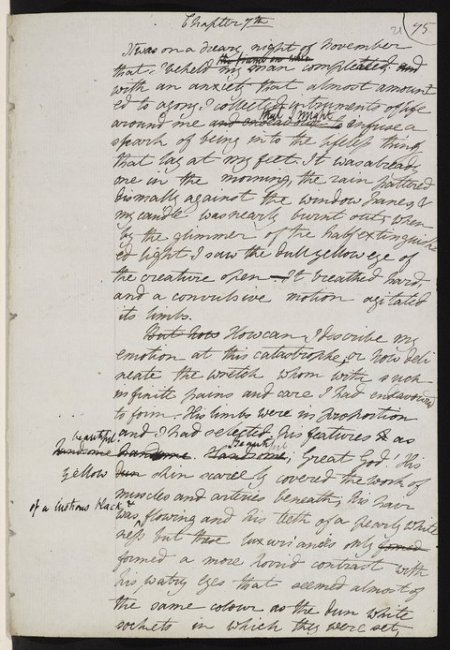 Chapter 7th
75
It was on a dreary night of November
that I beheld my man completed and
with an anxiety that almost amount
ed to agony, I collected instruments of life
around me that I might infuse a
spark of being into the lifeless thing
that lay at my feet. It was already
one in the morning, the rain pattered
dismally against the window panes, &
my candle was nearly burnt out, when
by the glimmer of the half extinguish
ed light I saw the dull yellow eye of
the creature open – It breathed hard,
and a convulsive motion agitated
its limbs.
But how How can I describe my
emotion at this catastrophe, or how deli
neate the wretch whom with such
infinite pains and care I had endeavoured
to form. His limbs were in proportion
and I had selected his features & as
beautiful
handsome handsome. Handsome, Great God! His
yellow dun skin scarcely covered the work of
muscles and arteries beneath; his hair
of a lustrous black &
was flowing and his teeth of a pearly white
ness but these luxuriances only formed
formed a more horrid contrast with
his watry eyes that seemed almost of
the same colour as the dun white
sockets in which they were set,